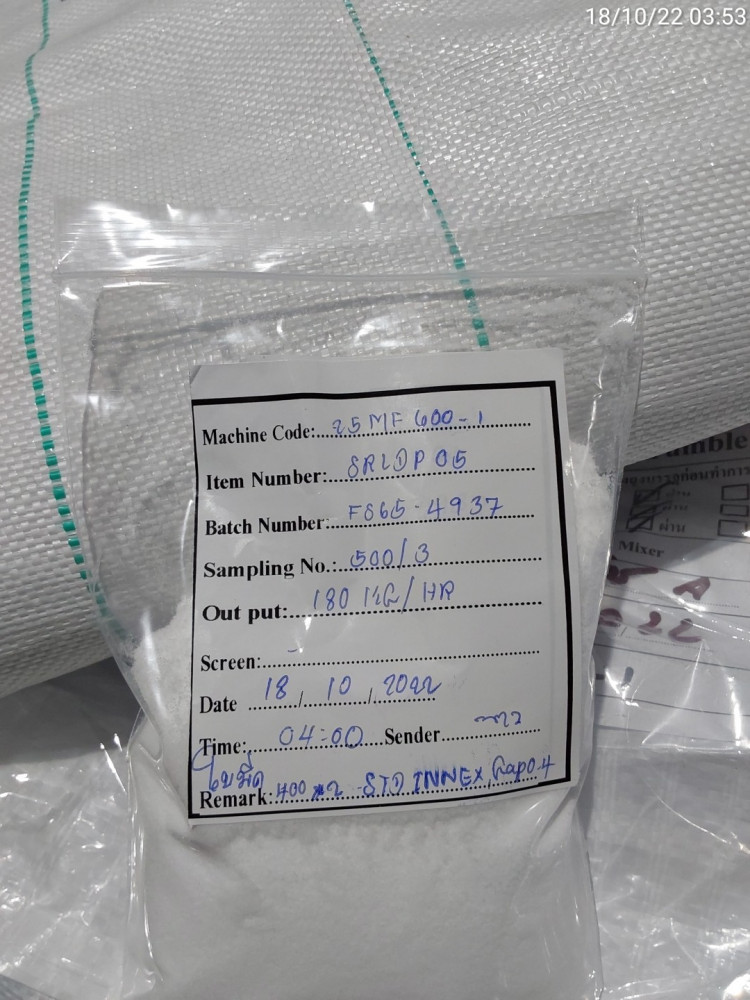 18/10/22 03:53
Machine Code: 25 MF 600-1
Item Number: SRLDP 05
Batch Number: FS65-4937
Sampling No.: 500/3
Out put: 180 KG/HR
Screen: -
Date 18, 10, 2022
Time: 04:00 Sender
ใบมีด
Remark: 400 x2 STD INNEX, Gap 0.4
umble
ผ่าน
ผ่าน
Mixer
A